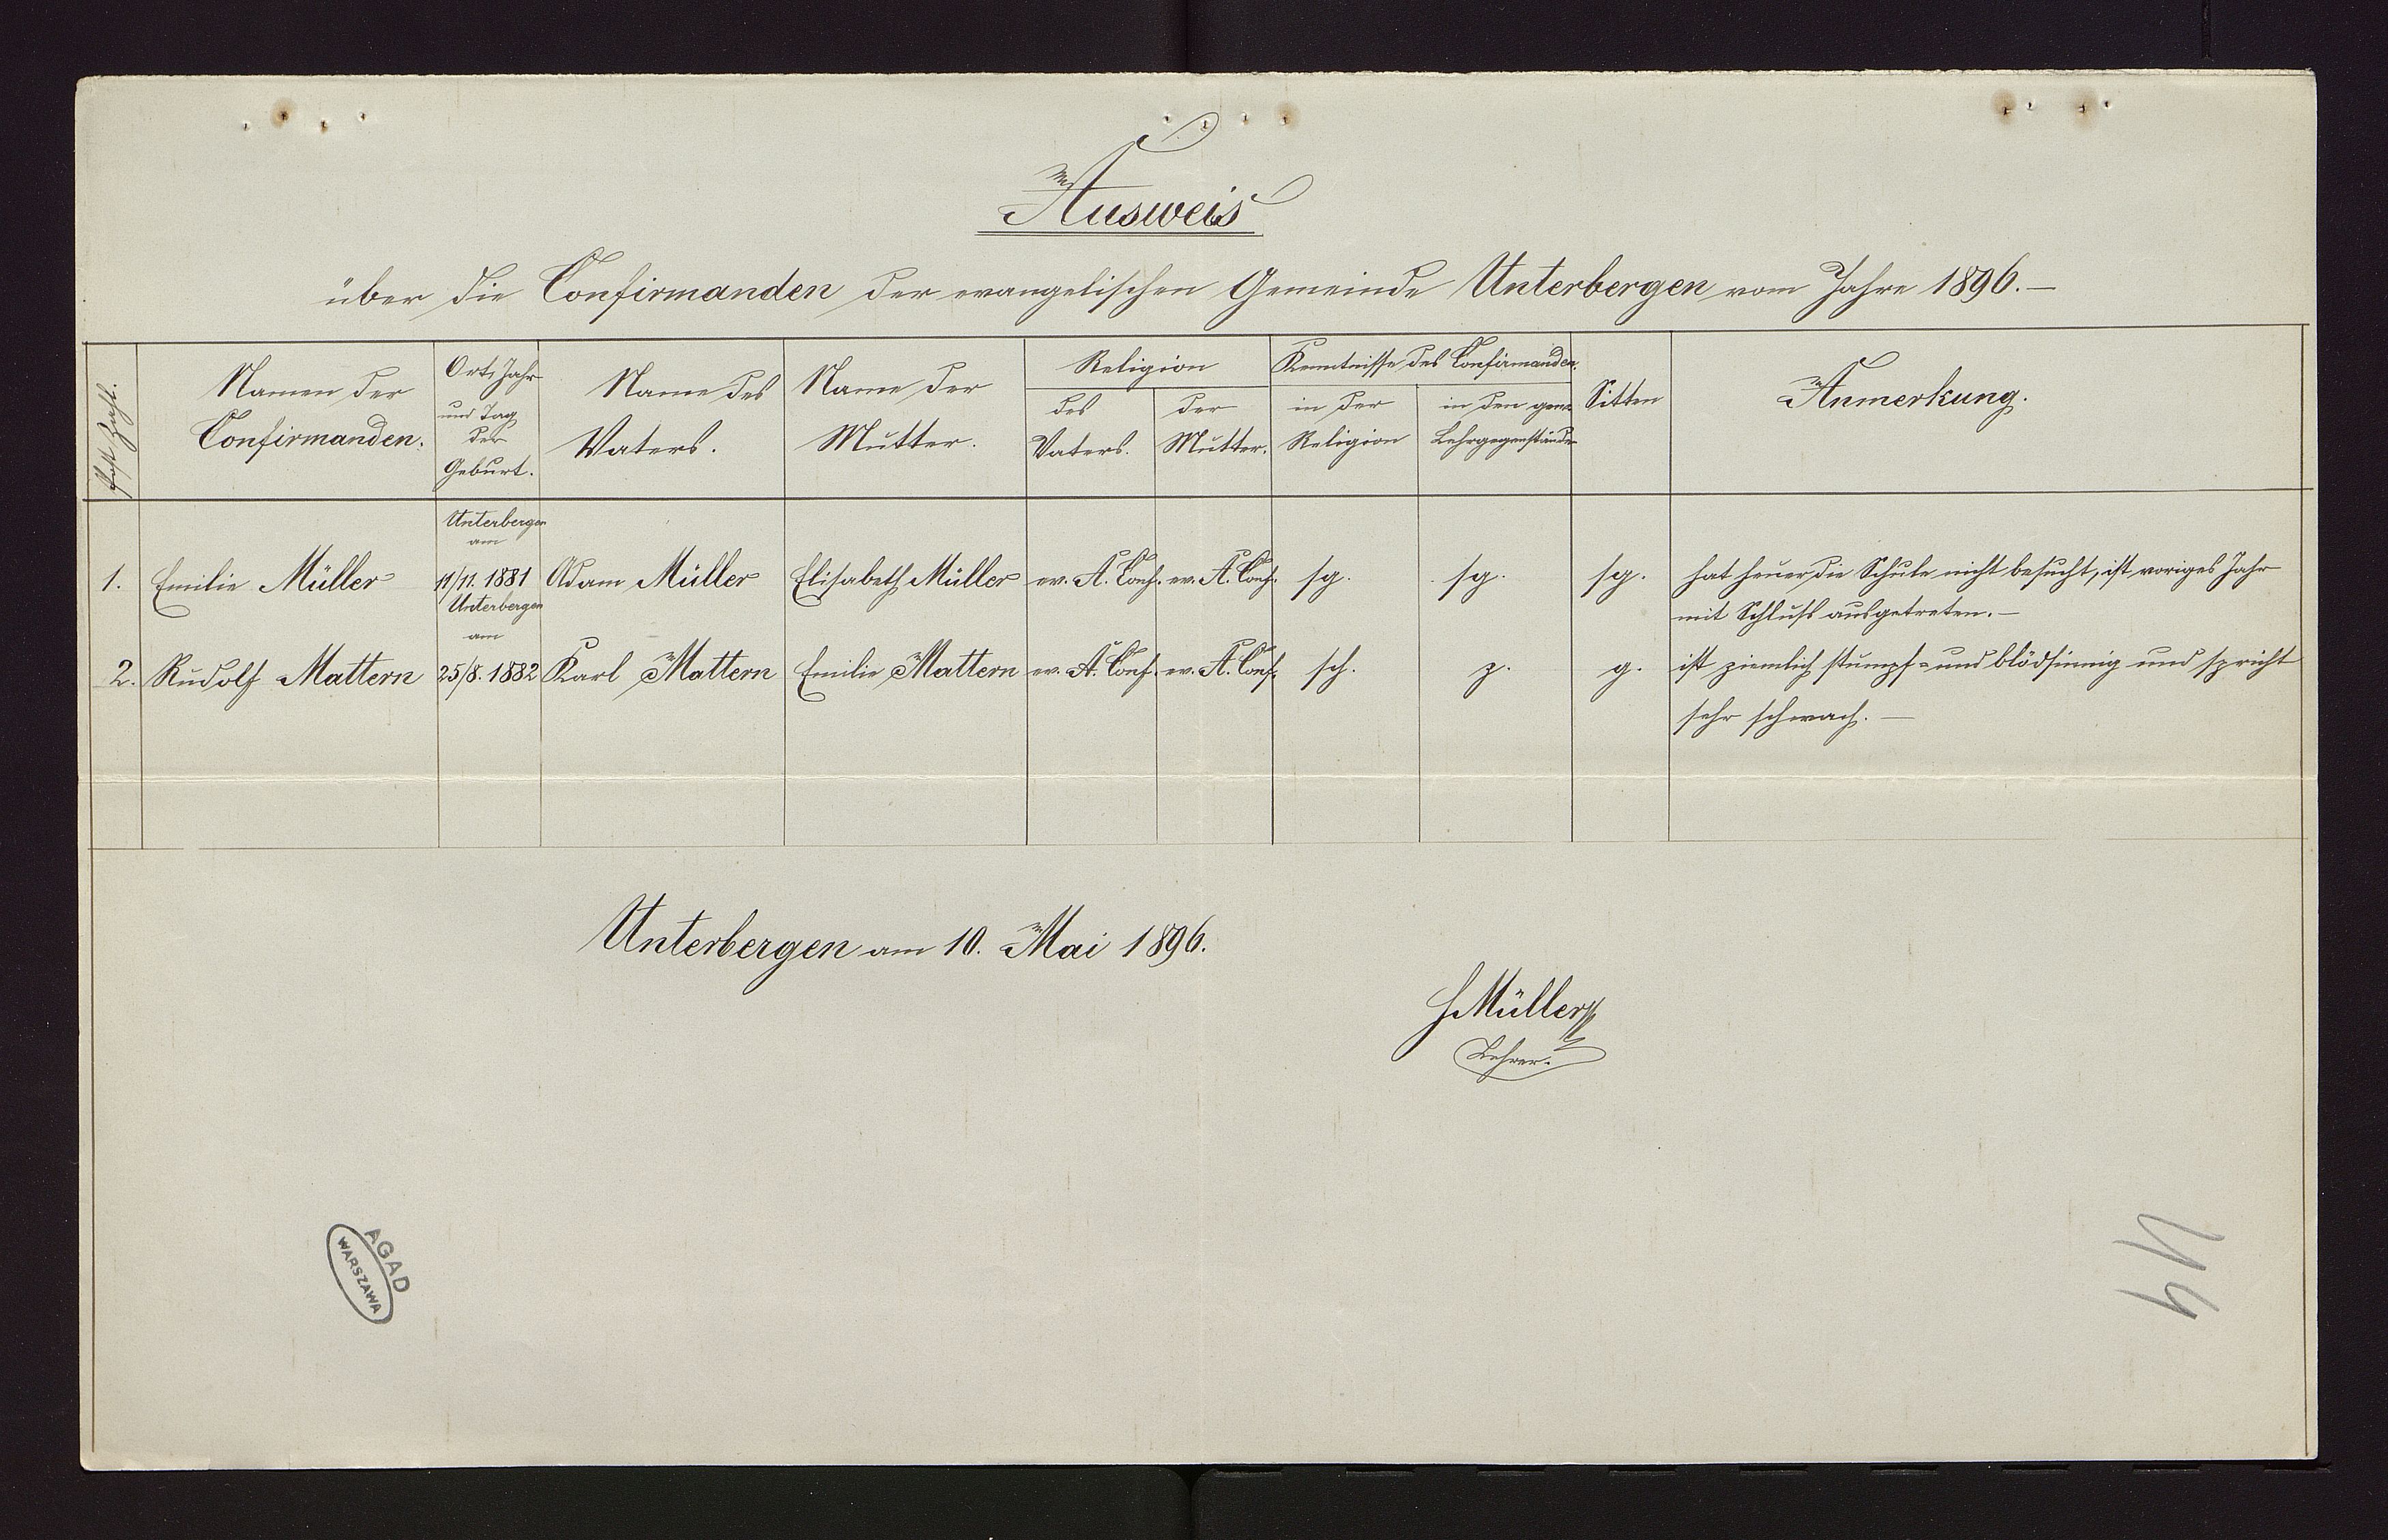 Ausweis
über die Confirmanden der evangelischen Gemeinde Unterbergen vom Jahre 1896.—
Post Zahl.
Namen der
Confirmanden.
Ort, Jahr
und Tag
der
Geburt.
Name des
Vaters.
Name der
Mutter.
Religion
des
Vaters.
der
Mutter.
Kenntnisse des Confirmanden.
in der
Religion
in den gew.
Lehrgegenständen
Sitten
Anmerkung.
1. Emilie Müller
Unterbergen
am
11/11. 1881
Adam Müller Elisabeth Müller ev. A. Conf. ev. A. Conf. sg. sg. sg.
hat heuer die Schule nicht besucht, ist voriges Jahr
mit Schluß ausgetreten.—
2. Rudolf Mattern
Unterbergen
am
25/8. 1882
Karl Mattern Emilie Mattern ev. A. Conf. ev. A. Conf. sch. g. g.
ist ziemlich stumpf- und blödsinnig und spricht
sehr schwach.—
Unterbergen am 10. Mai 1896.
Müller
Lehrer.
AGAD
WARSZAWA
44